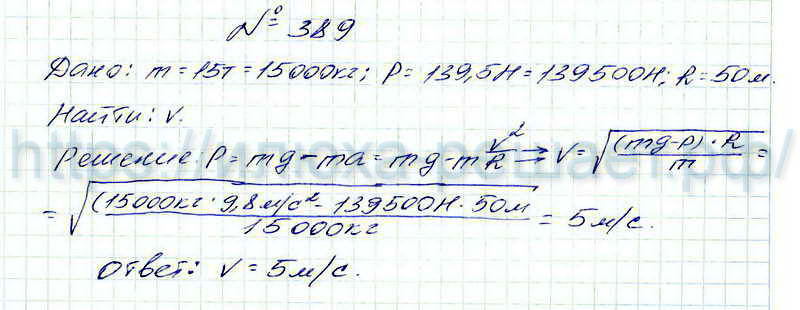 № 389
Дано: m = 15т = 15000кг; P = 139,5Н = 139500Н; R = 50м.
Найти: v.
Решение: P = mg - ma = mg - m v²/R ⇒ v = √((mg-P)·R/m) =
= √((15000кг · 9,8м/с² - 139500Н · 50м/15000кг) = 5м/с.
Ответ: v = 5м/с.